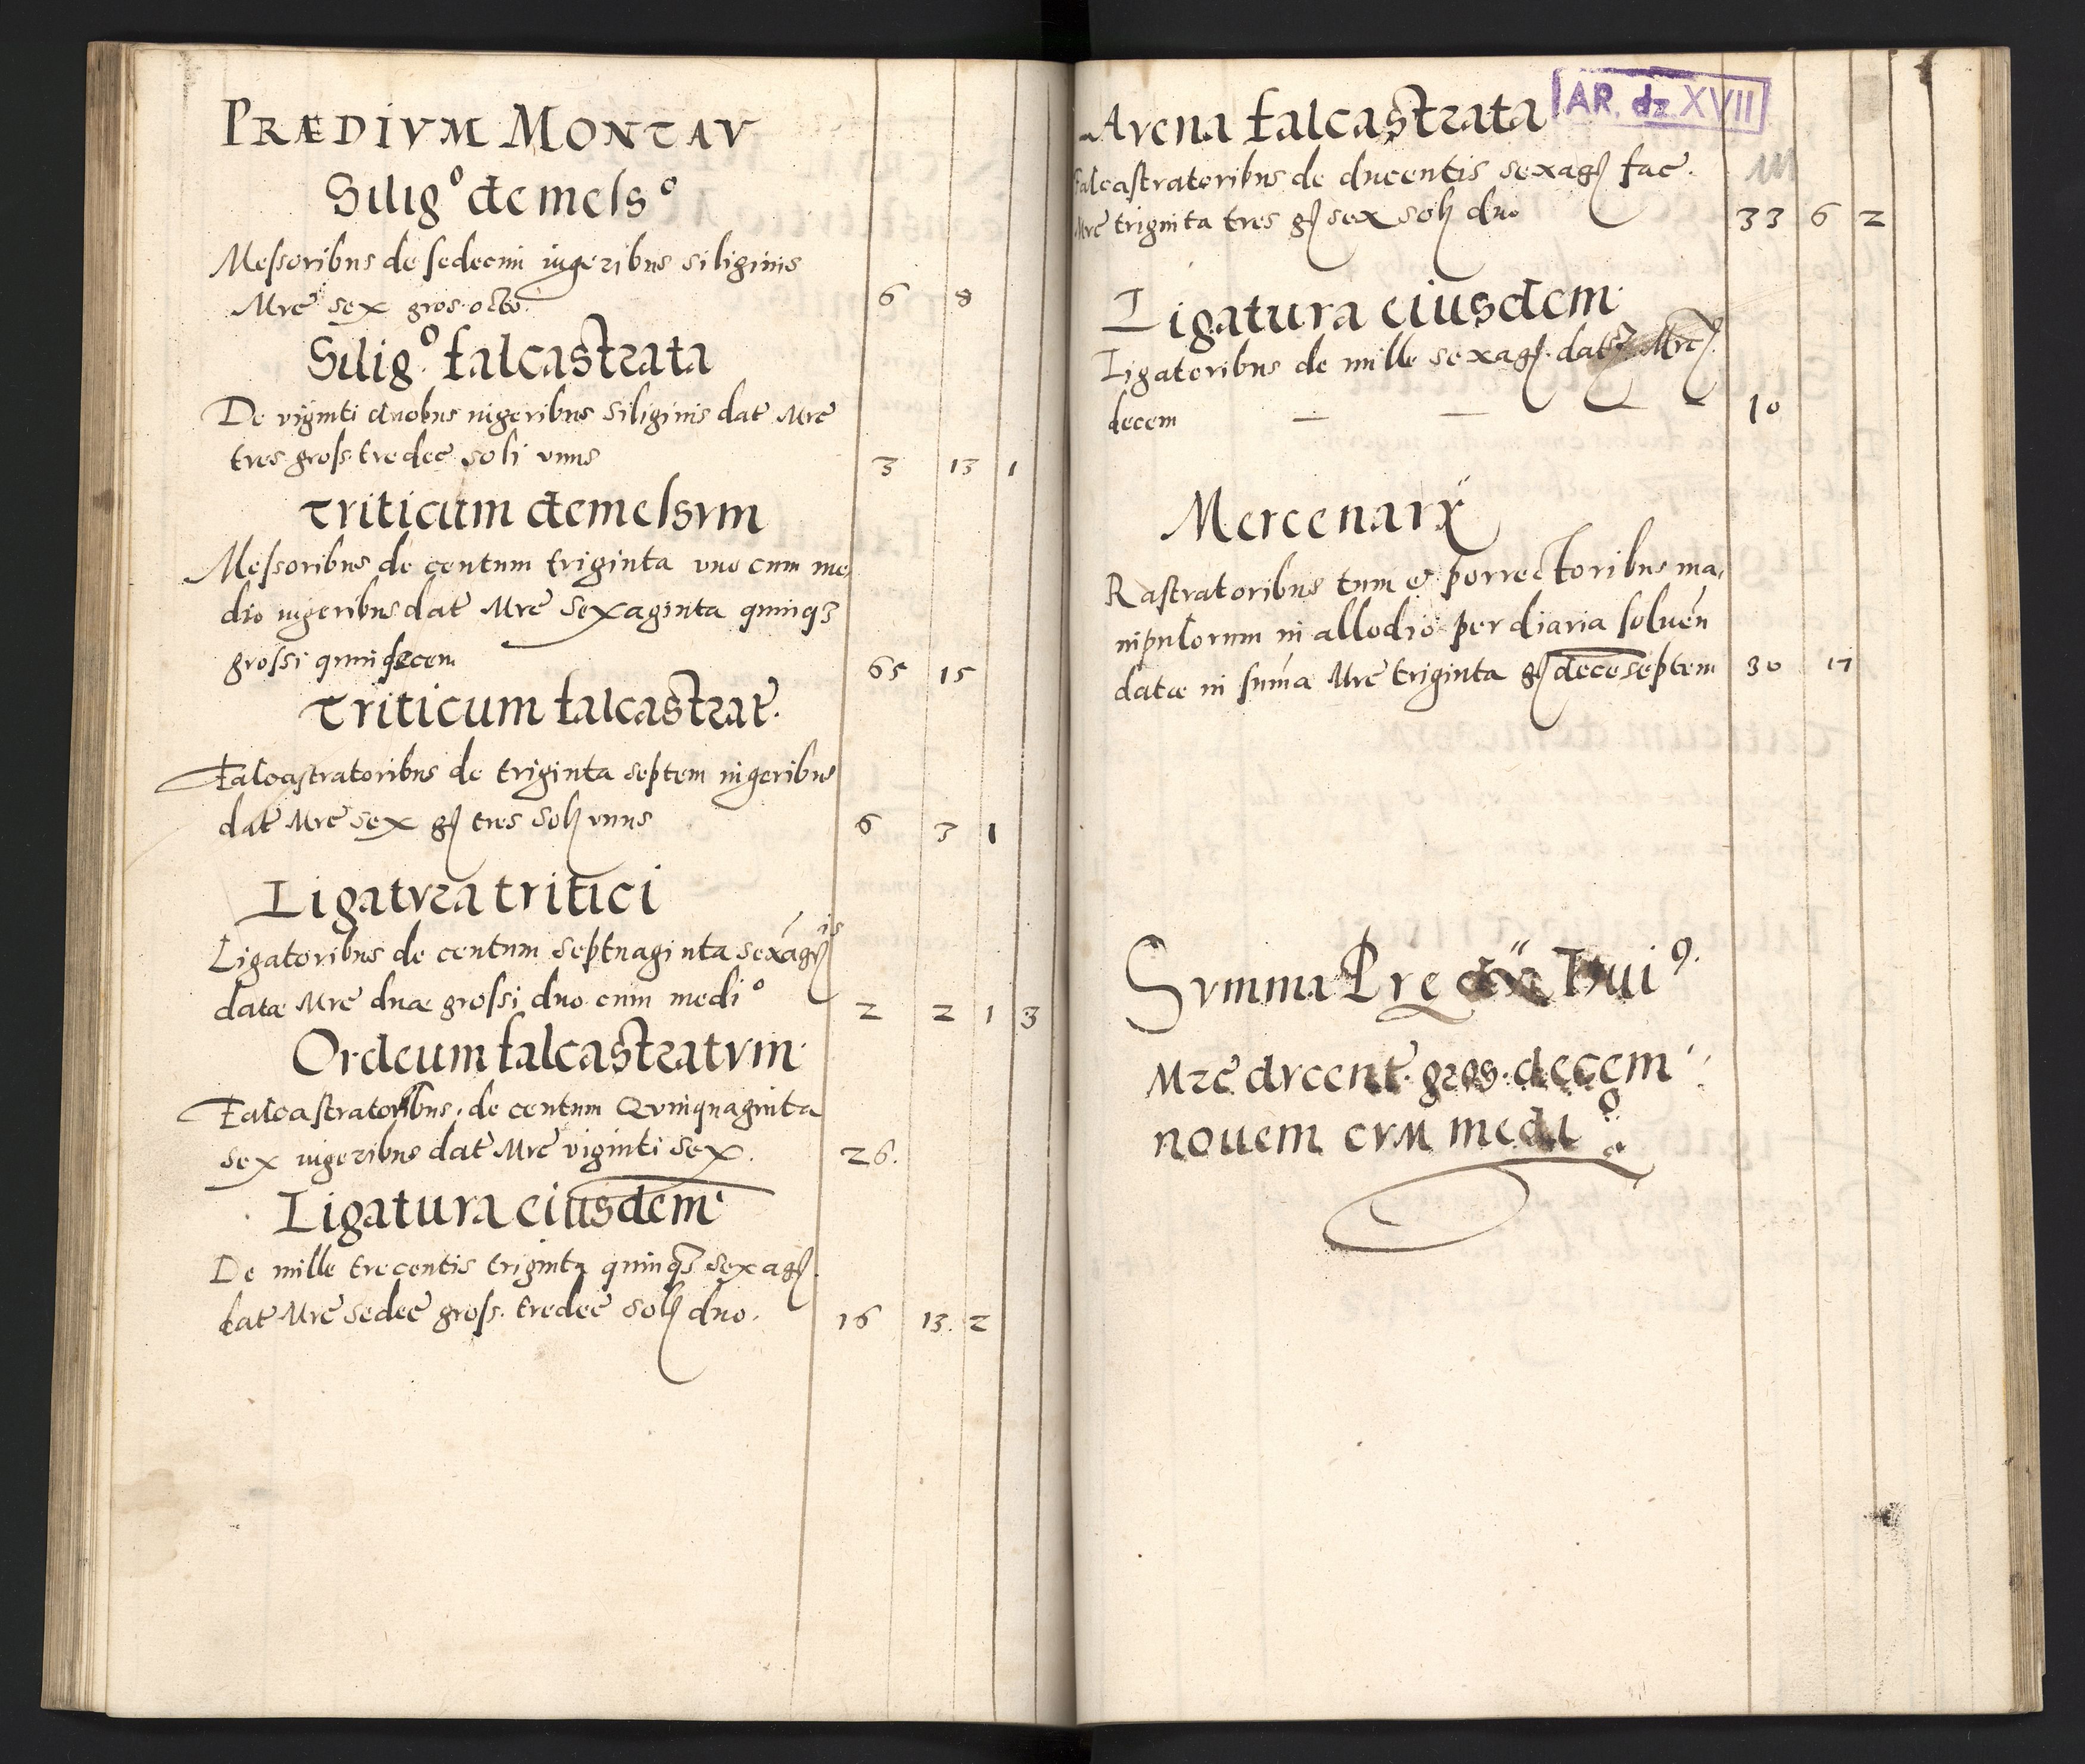 PRÆDIVM MONTAV
Silig° demels°
Messoribus de sedecim iugeribus siliginis
Mrc̃ sex gros. octo. 6 8
Silig.° falcastrata
De viginti duobus iugeribus siliginis dat̃ Mrc̃
tres gross tredec̃ soli vnus 3 13 1
Triticum demelsvm
Messoribus de centum triginta vno cum me,
dio iugeribus dat̃ Mrc̃ sexaginta quinqʒ
grossi quindecem 65 15
Triticum falcastrat̃.
Falcastratoribus de triginta septem iugeribus
dat̃ Mrc̃ sex gʃ tres solʃ vnus 6 3 1
Ligatvra tritici
Ligatoribus de centum septuaginta sexagis
datæ Mrc̃ duæ grossi duo cum medi° 2 2 1 3
Ordeum falcastratvm.
Falcastratoribus. de centum Qvinquaginta
sex iugeribus dat̃ Mrc̃ viginti sex. 26.
Ligatura eiusdem
De mille trecentis triginta quinqʒ sexagʃ.
dat̃ Mrc̃ sedec̃ gross. tredec̃ solʃ duo. 16 13. 2
Avena falcastrata
AR. dz XVII
Falcastratoribus de ducentis sexagʃ fac̃.
Mrc̃ triginta tres gʃ sex solʃ duo 33 6 2
Ligatura eiusdem
Ligatoribus de mille sexagʃ. dat̃ Mrcʃ.
decem — — — 10
Mercenarÿ
Rastratoribus tum et porrectoribus ma,
nipulorum in allodio per diaria soluen̄
datæ in sum̄a Mrc̃ triginta gʃ decẽ septem 30 17
Svmma Predÿ Hui9.
Mrc̃ dvcent̃. gros. decem
novem cvm medi°